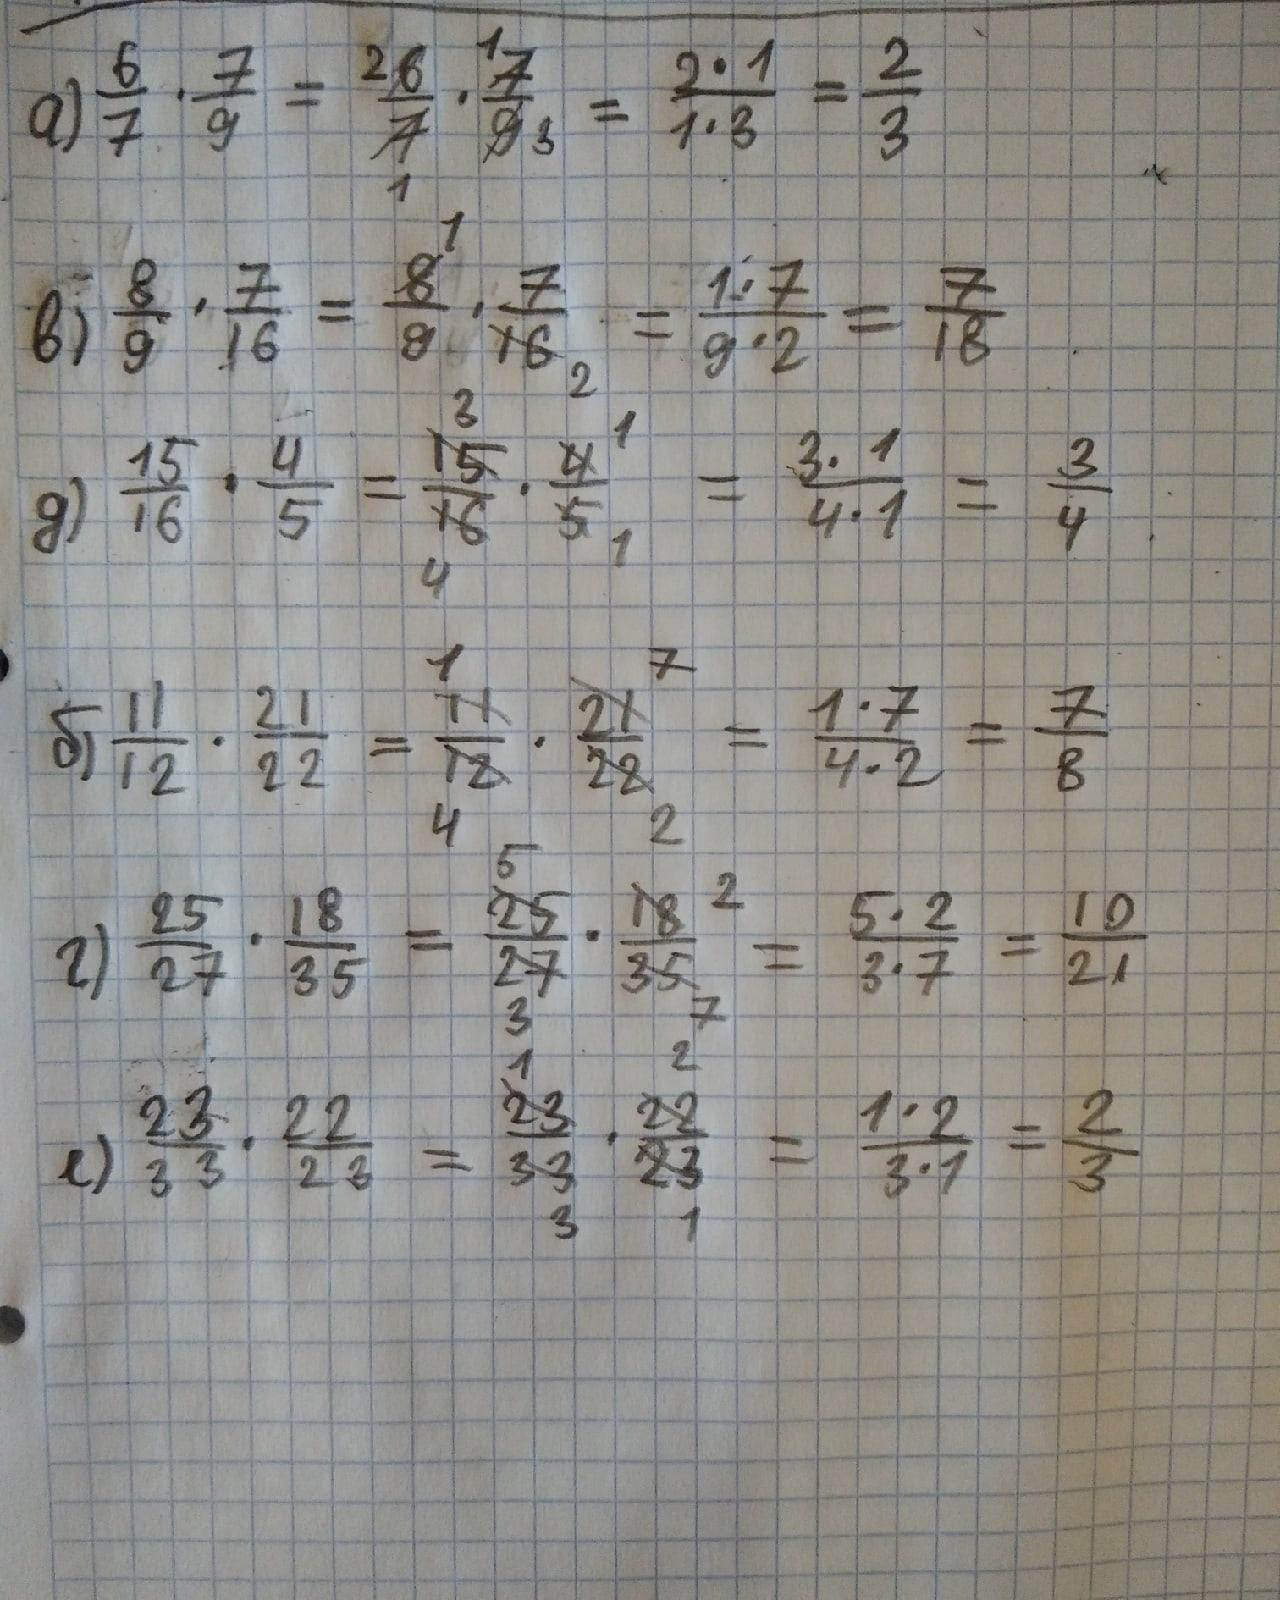 а) 6/7 · 7/9 = 2 6/7 1 · 1 7/9 3 = 2·1/1·3 = 2/3
в) 8/9 · 7/16 = 8 1/9 · 7/16 2 = 1·7/9·2 = 7/18
д) 15/16 · 4/5 = 3 15/16 4 · 4 1/5 1 = 3·1/4·1 = 3/4
б) 11/12 · 21/22 = 1 11/12 4 · 21 7/22 2 = 1·7/4·2 = 7/8
г) 25/27 · 18/35 = 5 25/27 3 · 18 2/35 7 = 5·2/3·7 = 10/21
е) 23/33 · 22/23 = 1 23/33 3 · 2 22/23 1 = 1·2/3·1 = 2/3